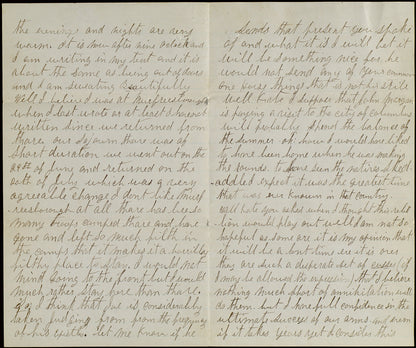 the evening and nights are very
warm. It is now after nine oclock and
I am writing in my tent and it is
about the same as being out of doors
and I am sweating beautifully
Well I believe I was at Murfreesboro
when I last wrote or at least I have not
written since we returned from
there. our Sojourn there was of
short duration we went out on the
of June and returned on the
of July which was a very
agreeable change I dont like Murf-
reesborough at all there has be so
many troops camped there and have
gone and left so much filth in
the camps that it makes it a
filthy place to stay. I would not
mind going to the front but would
much rather stay here than there
I think that Joe is considerably
judging from from the frequency
of his epistles. let me know if he
Sends that present you spoke
of and what it is I will bet it
will be something nice for he
would not send any of your common
one horse things that is not his stile
Well Bob I suppose that John Morgan
is paying a visit to the city of Columbus
will probably spend the balance of
the Summer oh how I would have liked
to have been home when he was making
the rounds to have seen the natives
I expect it was the greatest time
that was ever known in that country
Well Bob you asked when I thought this rebe
llion would play out Well I am not so
hopeful as some are it is my opinion that
it will be a long time as it is over
they are such a desperate set of cusses (if
I may be allowed the expression) that I believe
nothing much short of annihilation will
do them but I have full confidence in the
ultimate success of our arms and even
if it takes years yet I consider this